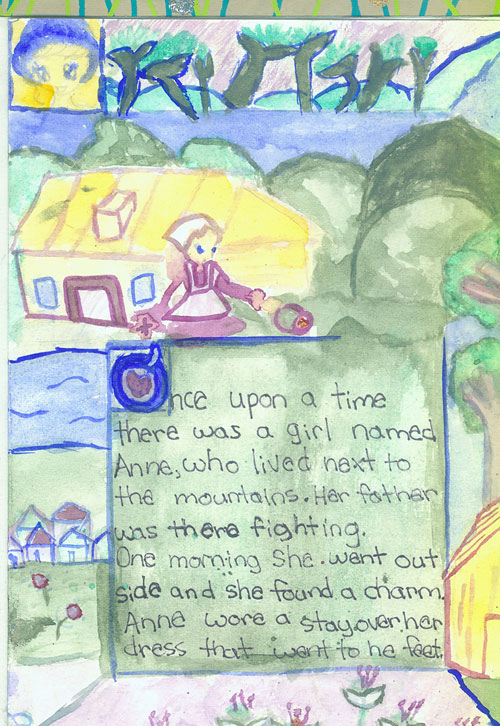 Once upon a time
there was a girl named
Anne, who lived next to
the mountains. Her father
was there fighting.
One morning she went out
side and she found a charm.
Anne wore a stay over her
dress that went to he feet.